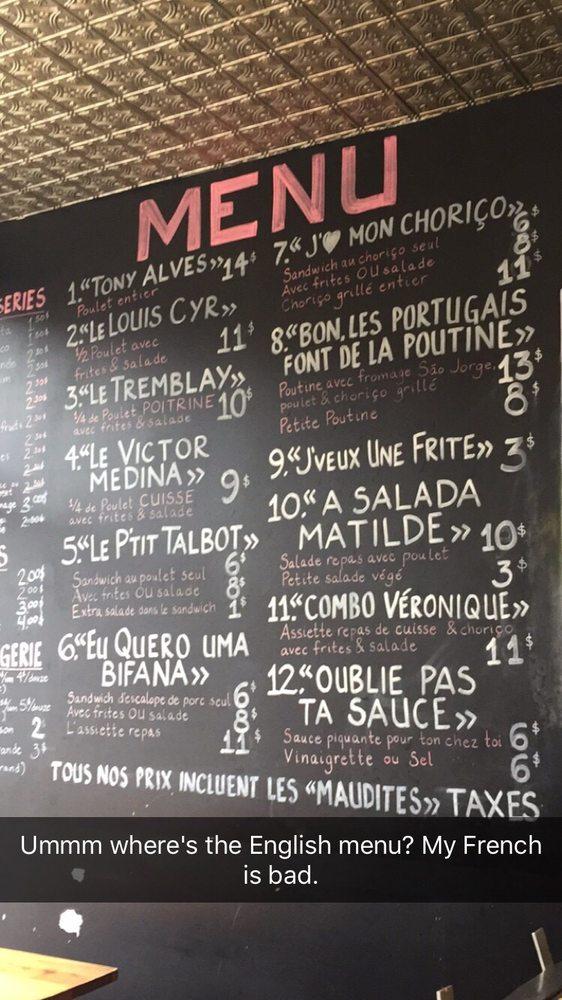 MENU
1. "TONY ALVES" 14$
Poulet entier
2. "LE LOUIS CYR" 
½ Poulet avec 11$
frites & salade
3. "LE TREMBLAY"
¼ de Poulet POITRINE 10$
avec frites & salade
4. "LE VICTOR
MEDINA" 9$
¼ de Poulet CUISSE
avec frites & salade
5. "LE P'TIT TALBOT"
Sandwich au poulet seul 6$
Avec frites OU salade 8$
Extra salade dans le sandwich 1$
6. "EU QUERO UMA
BIFANA"
Sandwich d'escalope de porc seul 6$
Avec frites OU salade 8$
L'assiette repas 11$
7. "J'♥ MON CHORIÇO"
Sandwich au choriço seul 6$
Avec frites OU salade 8$
Choriço grillé entier 11$
8. "BON, LES PORTUGAIS
FONT DE LA POUTINE"
Poutine avec fromage São Jorge, 13$
poulet & choriço grillé
Petite Poutine 8$
9. "J'VEUX UNE FRITE" 3$
10. "A SALADA
MATILDE" 10$
Salade repas avec poulet
Petite salade végé 3$
11. "COMBO VÉRONIQUE"
Assiette repas de cuisse & choriço
avec frites & salade 11$
12. "OUBLIE PAS
TA SAUCE"
Sauce piquante pour ton chez toi 6$
Vinaigrette ou Sel 6$
TOUS NOS PRIX INCLUENT LES "MAUDITES" TAXES
Ummm where's the English menu? My French
is bad.